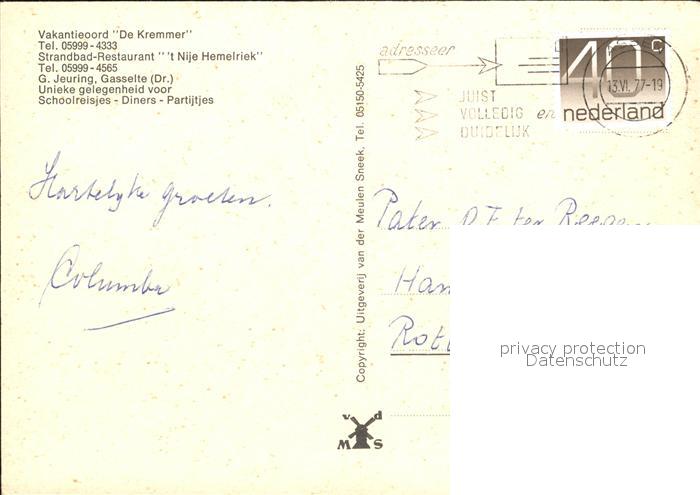 Vakantieoord ''De Kremmer''
Tel. 05999-4333
Strandbad-Restaurant '' 't Nije Hemelriek''
Tel. 05999-4565
G. Jeuring, Gasselte (Dr.)
Unieke gelegenheid voor
Schoolreisjes - Diners - Partijtjes
Hartelyke groeten.
Columba
Copyright: Uitgeverij van der Meulen Sneek, Tel. 05150-5425
v d
M S
adresseer
JUIST
VOLLEDIG en
DUIDELIJK
40 c
nederland
13.VI.77-19
Pater
ter
Han
Rot
privacy protection
Datenschutz